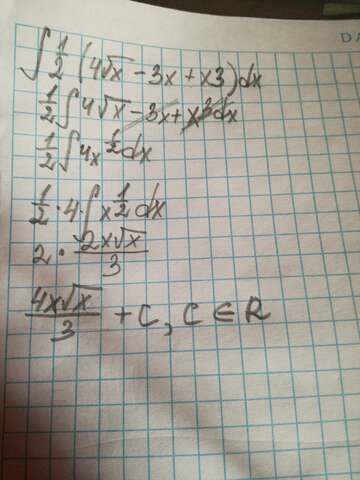 ∫ 1/2 (4√x - 3x + x3) dx
1/2 ∫ 4√x - 3x + x³ dx
1/2 ∫ 4x^1/2 dx
1/2 · 4 · ∫ x^1/2 dx
2 · 2x√x/3
4x√x/3 + C, C ∈ R
DA